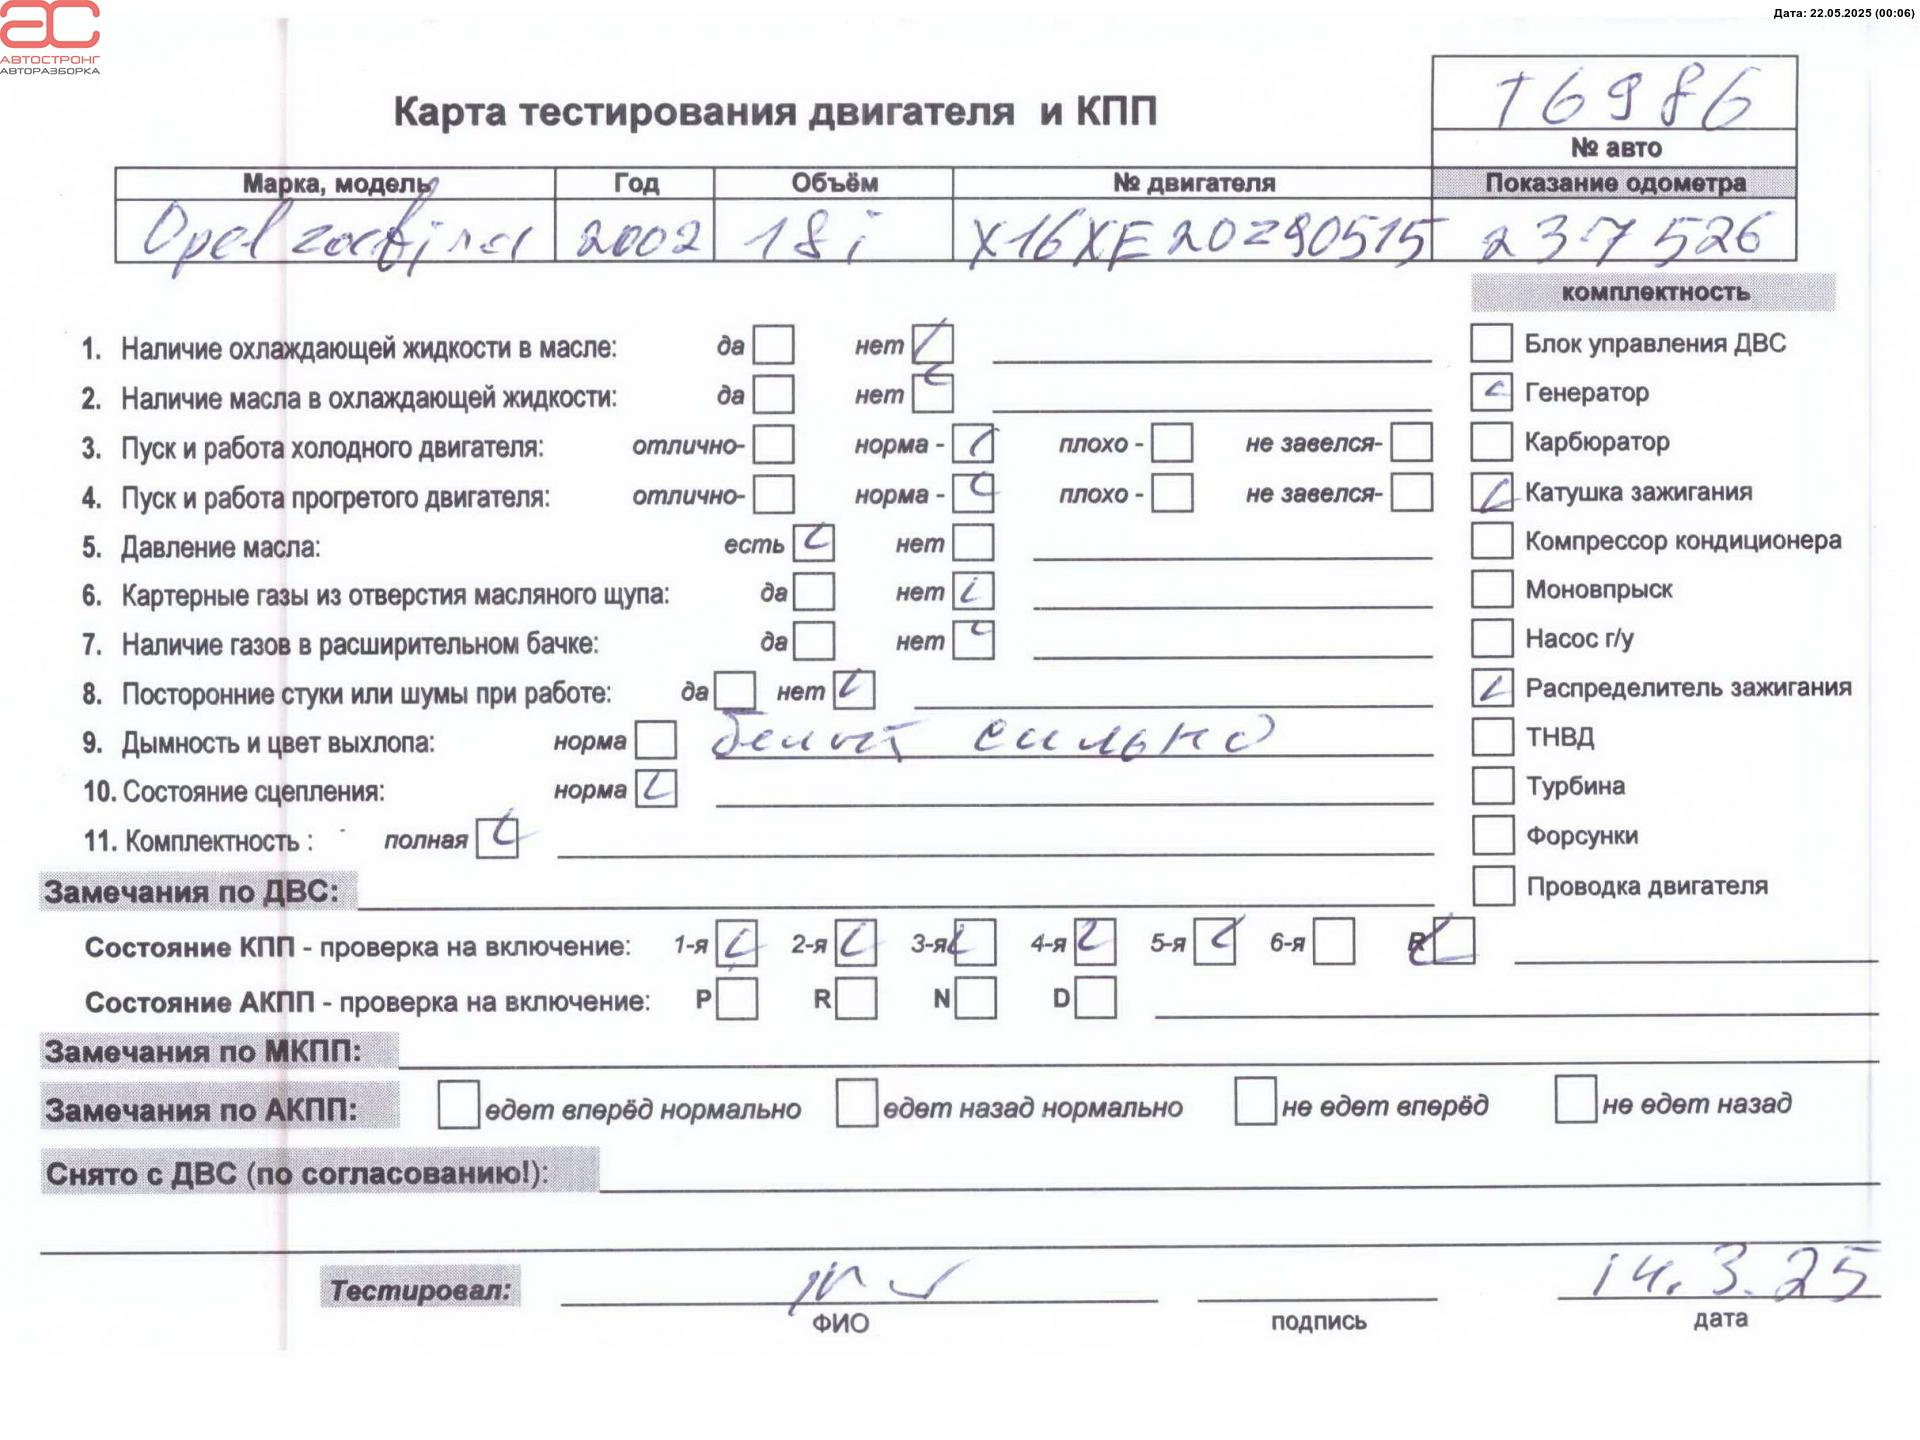 Дата: 22.05.2025 (00:06)
АВТОСТРОНГ
АВТОРАЗБОРКА
Т6986
Карта тестирования двигателя и КПП
№ авто
Марка, модель Год Объём № двигателя Показание одометра
Opel zafira 2002 18i X16XE20290515 237526
комплектность
1. Наличие охлаждающей жидкости в масле: да нет Блок управления ДВС
2. Наличие масла в охлаждающей жидкости: да нет Генератор
3. Пуск и работа холодного двигателя: отлично- норма - плохо - не завелся- Карбюратор
4. Пуск и работа прогретого двигателя: отлично- норма - плохо - не завелся- Катушка зажигания
5. Давление масла: есть нет Компрессор кондиционера
6. Картерные газы из отверстия масляного щупа: да нет Моновпрыск
7. Наличие газов в расширительном бачке: да нет Насос г/у
8. Посторонние стуки или шумы при работе: да нет Распределитель зажигания
9. Дымность и цвет выхлопа: норма белый сильно ТНВД
10. Состояние сцепления: норма Турбина
11. Комплектность : полная Форсунки
Замечания по ДВС: Проводка двигателя
Состояние КПП - проверка на включение: 1-я 2-я 3-я 4-я 5-я 6-я R
Состояние АКПП - проверка на включение: P R N D
Замечания по МКПП:
Замечания по АКПП: едет вперёд нормально едет назад нормально не едет вперёд не едет назад
Снято с ДВС (по согласованию!):
Тестировал: 14.3.25
ФИО подпись дата